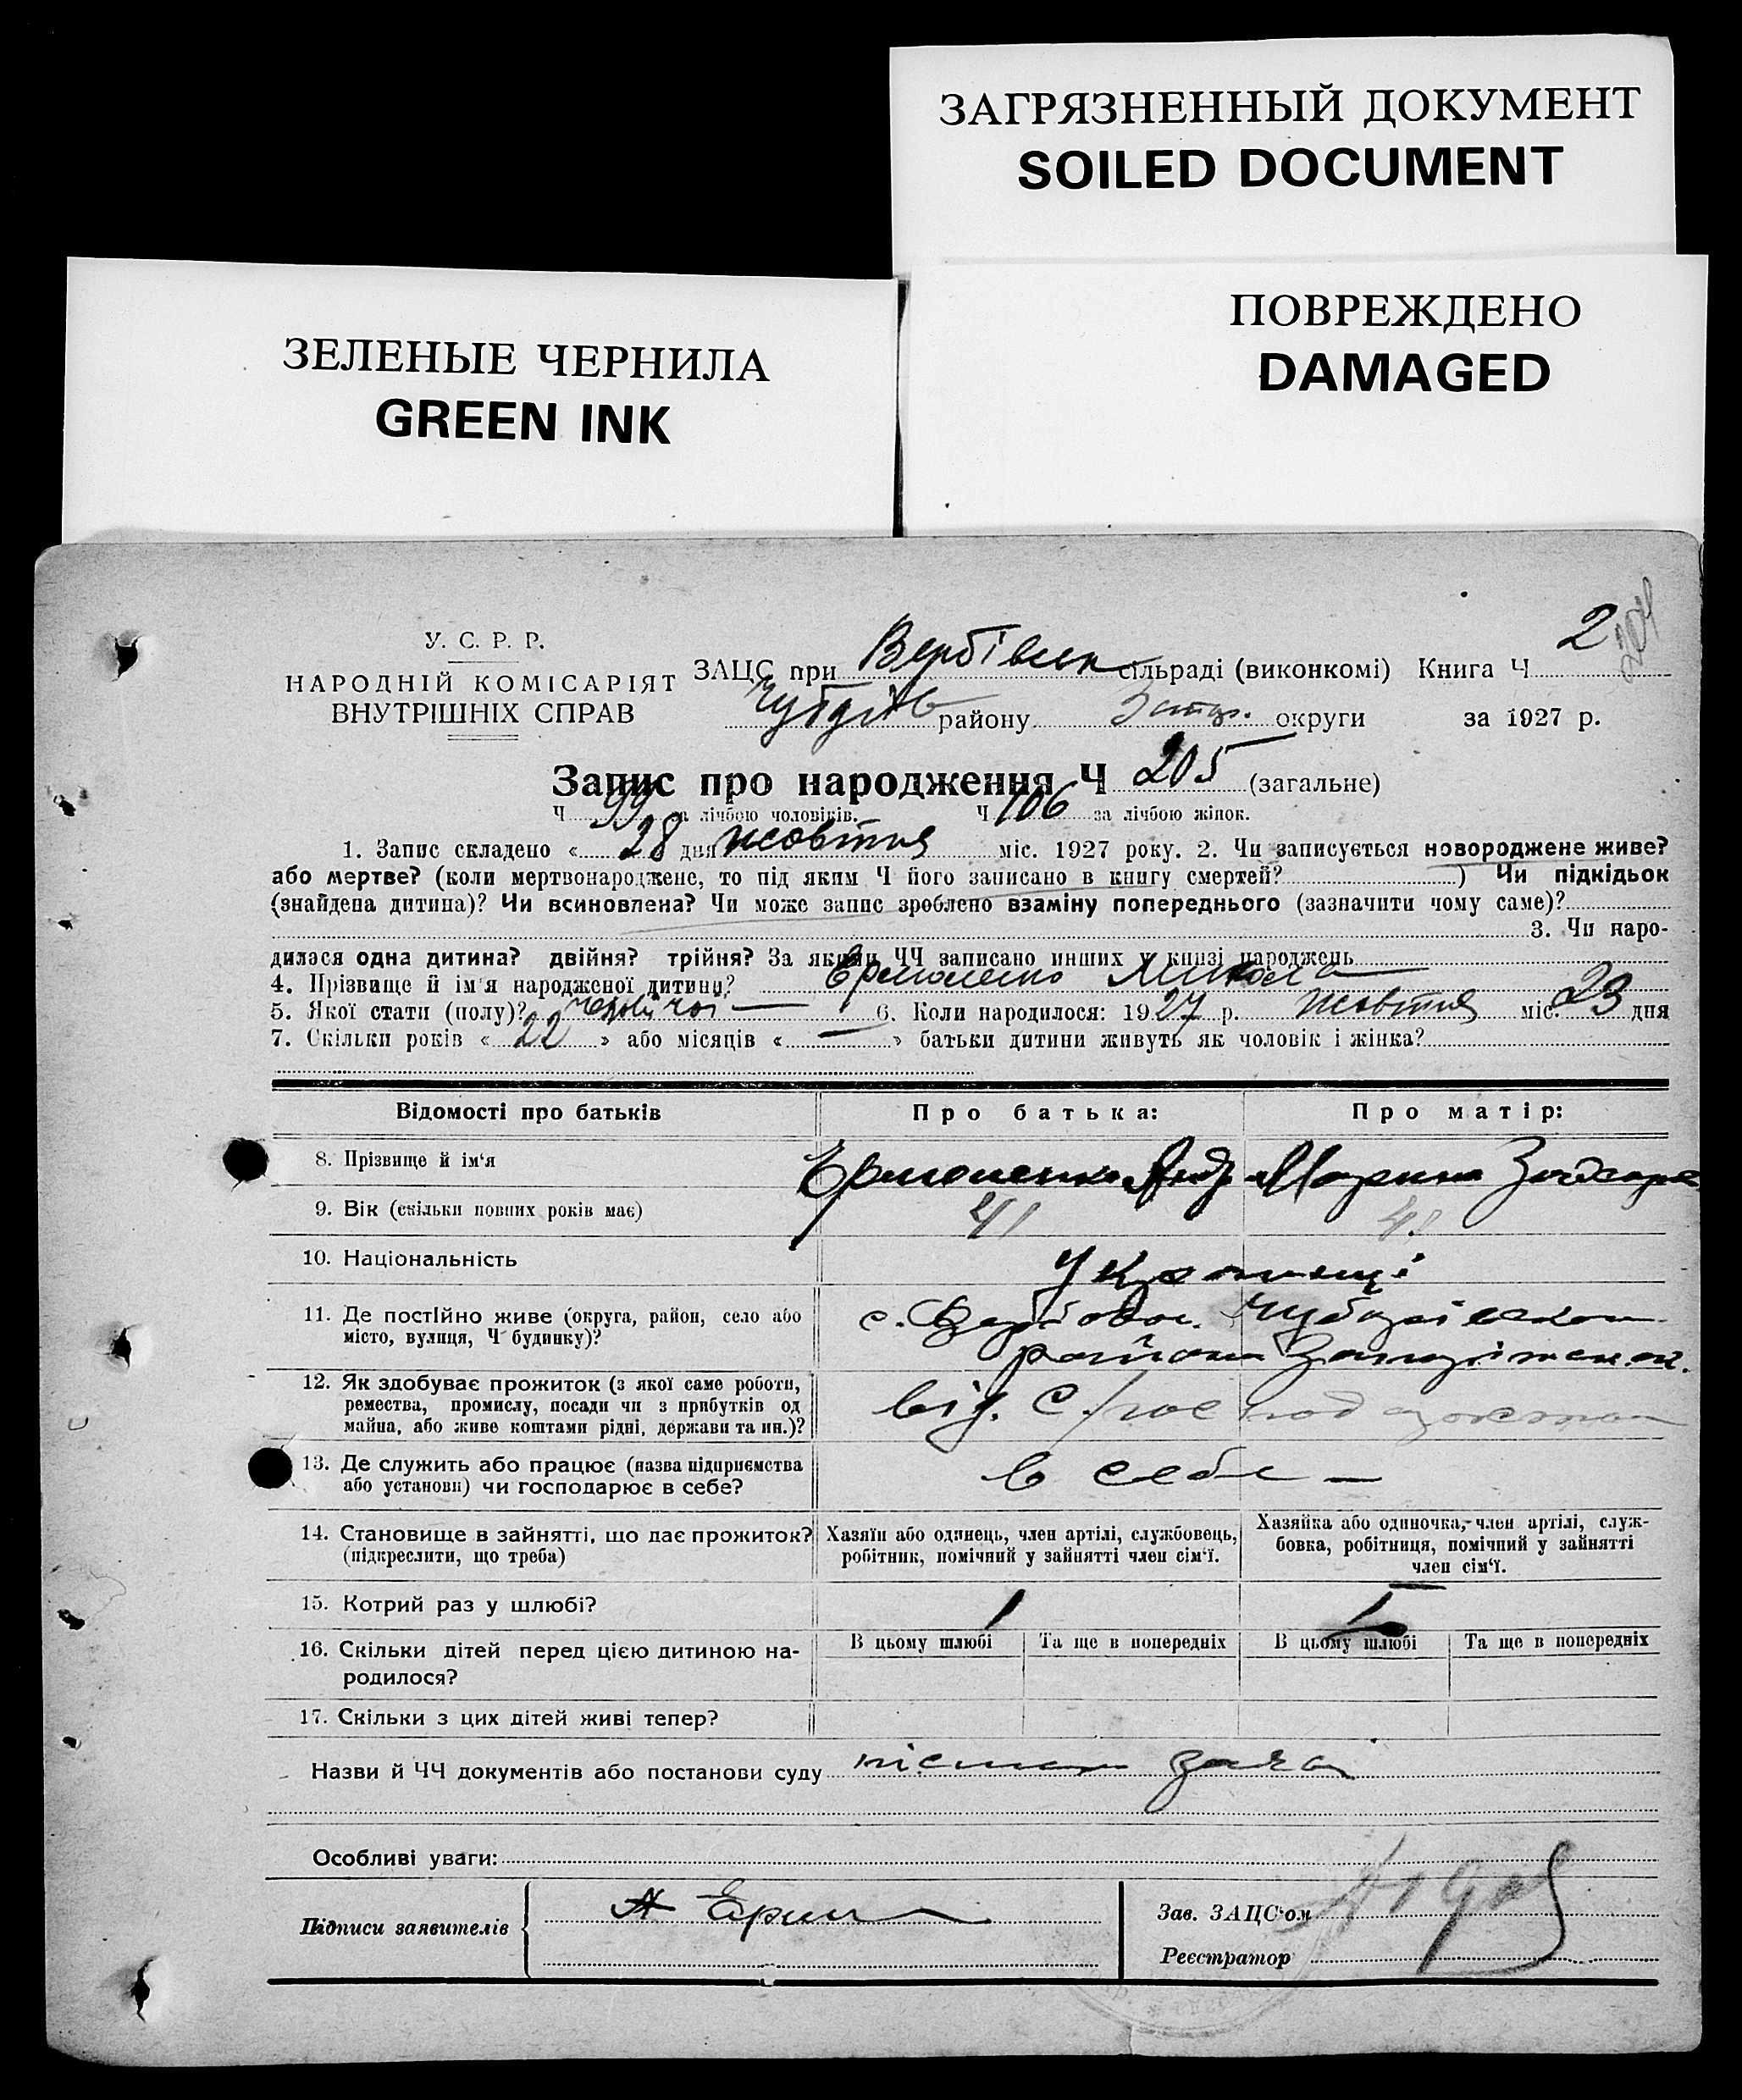 ЗАГРЯЗНЕННЫЙ ДОКУМЕНТ
SOILED DOCUMENT
ПОВРЕЖДЕНО
DAMAGED
ЗЕЛЕНЫЕ ЧЕРНИЛА
GREEN INK
У. С. Р. Р.
НАРОДНІЙ КОМІСАРІЯТ
ВНУТРІШНІХ СПРАВ
ЗАЦС при сільраді (виконкомі) Книга Ч 2
району округи за 1927 р.
Запис про народження Ч 205 (загальне)
Ч 99 за лічбою чоловіків. Ч 106 за лічбою жінок.
1. Запис складено « 28 дня жовтня міс. 1927 року. 2. Чи записується новороджене живе?
або мертве? (коли мертвонароджене, то під яким Ч його записано в книгу смертей? ) Чи підкідьок
(знайдена дитина)? Чи всиновлена? Чи може запис зроблено взаміну попереднього (зазначити чому саме)?
3. Чи наро-
дилася одна дитина? двійня? трійня? За якими ЧЧ записано инших у книзі народжень
4. Прізвище й ім'я народженої дитини? Ермоленко Микола
5. Якої стати (полу)? 6. Коли народилося: 1927 р. жовтня міс. 23 дня
7. Скільки років « 22 » або місяців « — » батьки дитини живуть як чоловік і жінка?
Відомості про батьків Про батька: Про матір:
8. Прізвище й ім'я Ермоленко Анд Марина
9. Вік (скільки повних років має) 41 41
10. Національність Українці
11. Де постійно живе (округа, район, село або
місто, вулиця, Ч будинку)? с.
12. Як здобуває прожиток (з якої саме роботи,
ремества, промислу, посади чи з прибутків од
майна, або живе коштами рідні, держави та ин.)? від. с/
13. Де служить або працює (назва підприємства
або установи) чи господарює в себе? в себе —
14. Становище в зайнятті, що дає прожиток?
(підкреслити, що треба)
Хазяїн або одинець, член артілі, службовець,
робітник, помічний у зайнятті член сім'ї.
Хазяйка або одиночка, член артілі, служ-
бовка, робітниця, помічний у зайнятті
член сім'ї.
15. Котрий раз у шлюбі? 1
16. Скільки дітей перед цією дитиною на-
родилося?
В цьому шлюбі Та ще в попередніх В цьому шлюбі Та ще в попередніх
17. Скільки з цих дітей живі тепер?
Назви й ЧЧ документів або постанови суду
Особливі уваги:
Підписи заявителів
Зав. ЗАЦС'ом
Реєстратор